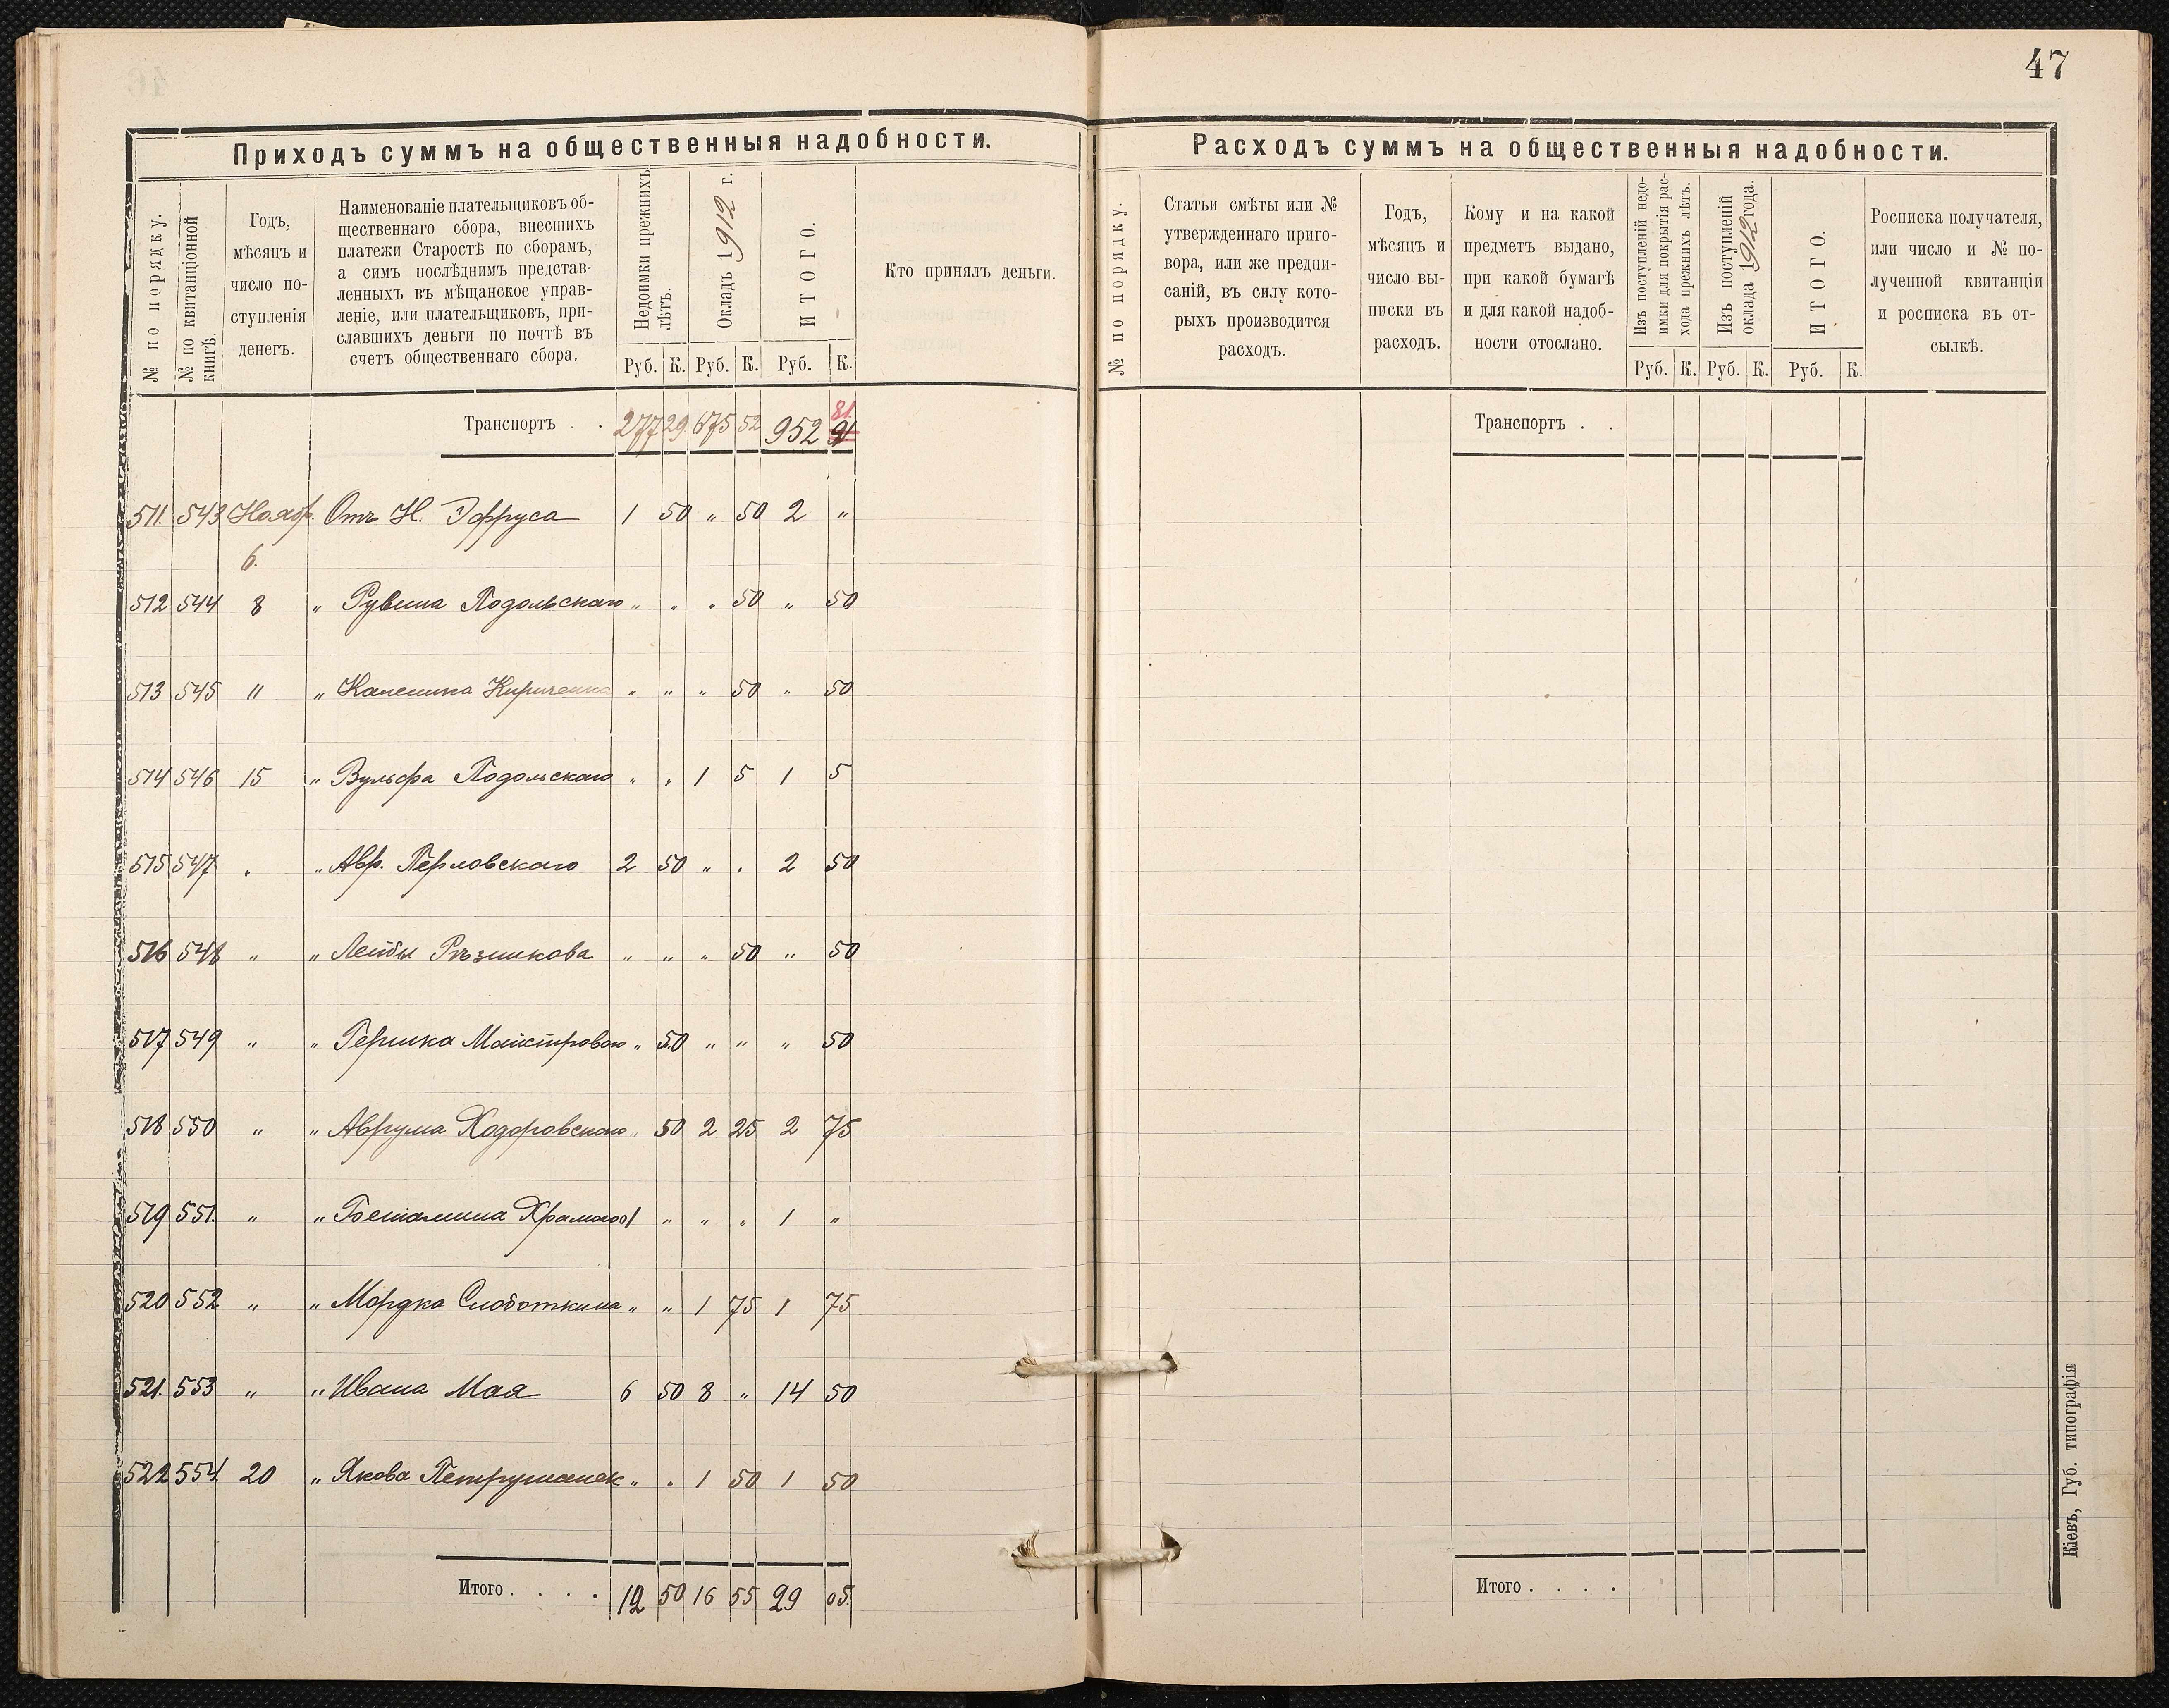 47
Приходъ суммъ на общественныя надобности.
№ по порядку.
№ по квитанціонной
книгѣ.
Годъ,
мѣсяцъ и
число по-
ступленія
денегъ.
Наименованіе плательщиковъ об-
щественнаго сбора, внесшихъ
платежи Старостѣ по сборамъ,
а симъ послѣднимъ представ-
ленныхъ въ мѣщанское управ-
леніе, или плательщиковъ, при-
славшихъ деньги по почтѣ въ
счетъ общественнаго сбора.
Недоимки прежнихъ
лѣтъ.
Окладъ 1912 г.
ИТОГО.
Кто принялъ деньги.
Руб. К. Руб. К. Руб. К.
81.
Транспортъ . . 277 29 675 52 952 91
511. 543 Ноябр. Отъ Н. Эфруса 1 50 „ 50 2 „
6.
512 544 8 „ Рувина Подольскаго „ „ „ 50 „ 50
513 545 11 „ Каленика Кириченка „ „ „ 50 „ 50
514 546 15 „ Вульфа Подольскаго „ „ 1 5 1 5
515 547 „ „ Авр. Перловскаго 2 50 „ „ 2 50
516 548 „ „ Лейбы Рѣзникова „ „ „ 50 „ 50
517 549 „ „ Гершка Майстрового „ 50 „ „ „ 50
518 550 „ „ Аврума Ходоровскаго „ 50 2 25 2 75
519 551. „ „ Храмого 1 „ „ „ 1 „
520 552 „ „ Мордка Слоботкина „ „ 1 75 1 75
521. 553 „ „ Ивана Мая 6 50 8 „ 14 50
522 554 20 „ Якова Петрушанск „ „ 1 50 1 50
Итого . . . . 12 50 16 55 29 05.
Расходъ суммъ на общественныя надобности.
№ по порядку.
Статьи смѣты или №
утвержденнаго приго-
вора, или же предпи-
саній, въ силу кото-
рыхъ производится
расходъ.
Годъ,
мѣсяцъ и
число вы-
писки въ
расходъ.
Кому и на какой
предметъ выдано,
при какой бумагѣ
и для какой надоб-
ности отослано.
Изъ поступленій недо-
имки для покрытія рас-
хода прежнихъ лѣтъ.
Изъ поступленій
оклада 1912 года.
ИТОГО.
Росписка получателя,
или число и № по-
лученной квитанціи
и росписка въ от-
сылкѣ.
Руб. К. Руб. К. Руб. К.
Транспортъ . .
Итого . . . .
Кіевъ, Губ. типографія